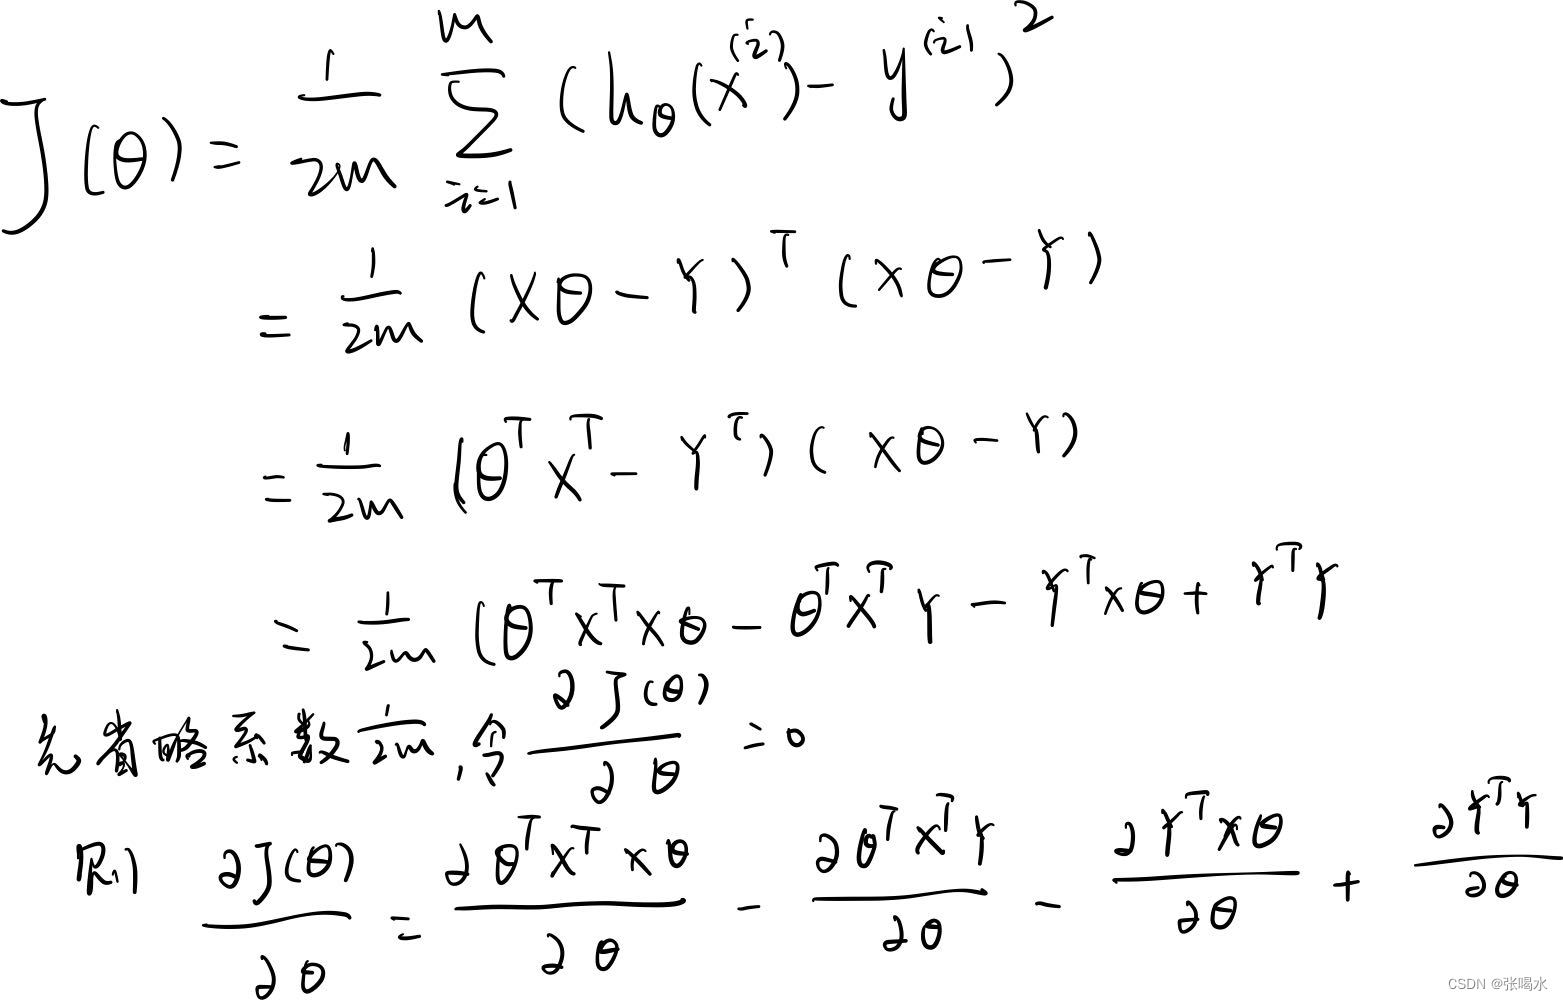 J(θ) = 1/2m ∑_{i=1}^{m} (h_θ(x^{(i)}) - y^{(i)})^2
= 1/2m (Xθ - Y)^T (Xθ - Y)
= 1/2m (θ^T X^T - Y^T) (Xθ - Y)
= 1/2m (θ^T X^T Xθ - θ^T X^T Y - Y^T Xθ + Y^T Y
先省略系数 1/2m , 令 ∂J(θ)/∂θ = 0
则 ∂J(θ)/∂θ = ∂θ^T X^T Xθ/∂θ - ∂θ^T X^T Y/∂θ - ∂Y^T Xθ/∂θ + ∂Y^T Y/∂θ
CSDN @张喝水